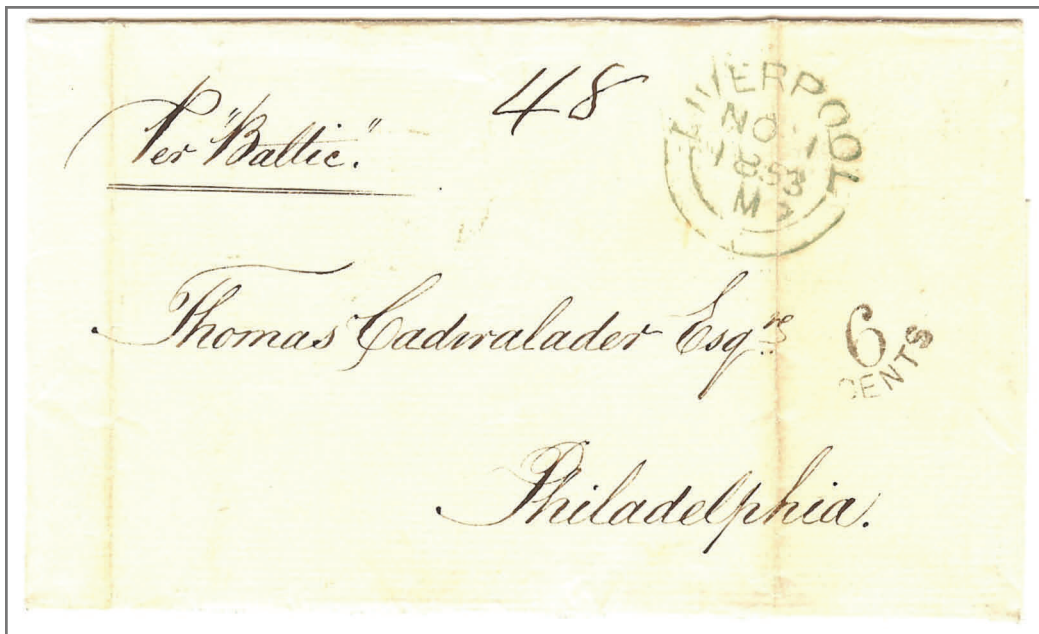 Per "Baltic."
48
LIVERPOOL
NO 1
1853
M
Thomas Cadwalader Esqre
6
CENTS
Philadelphia.